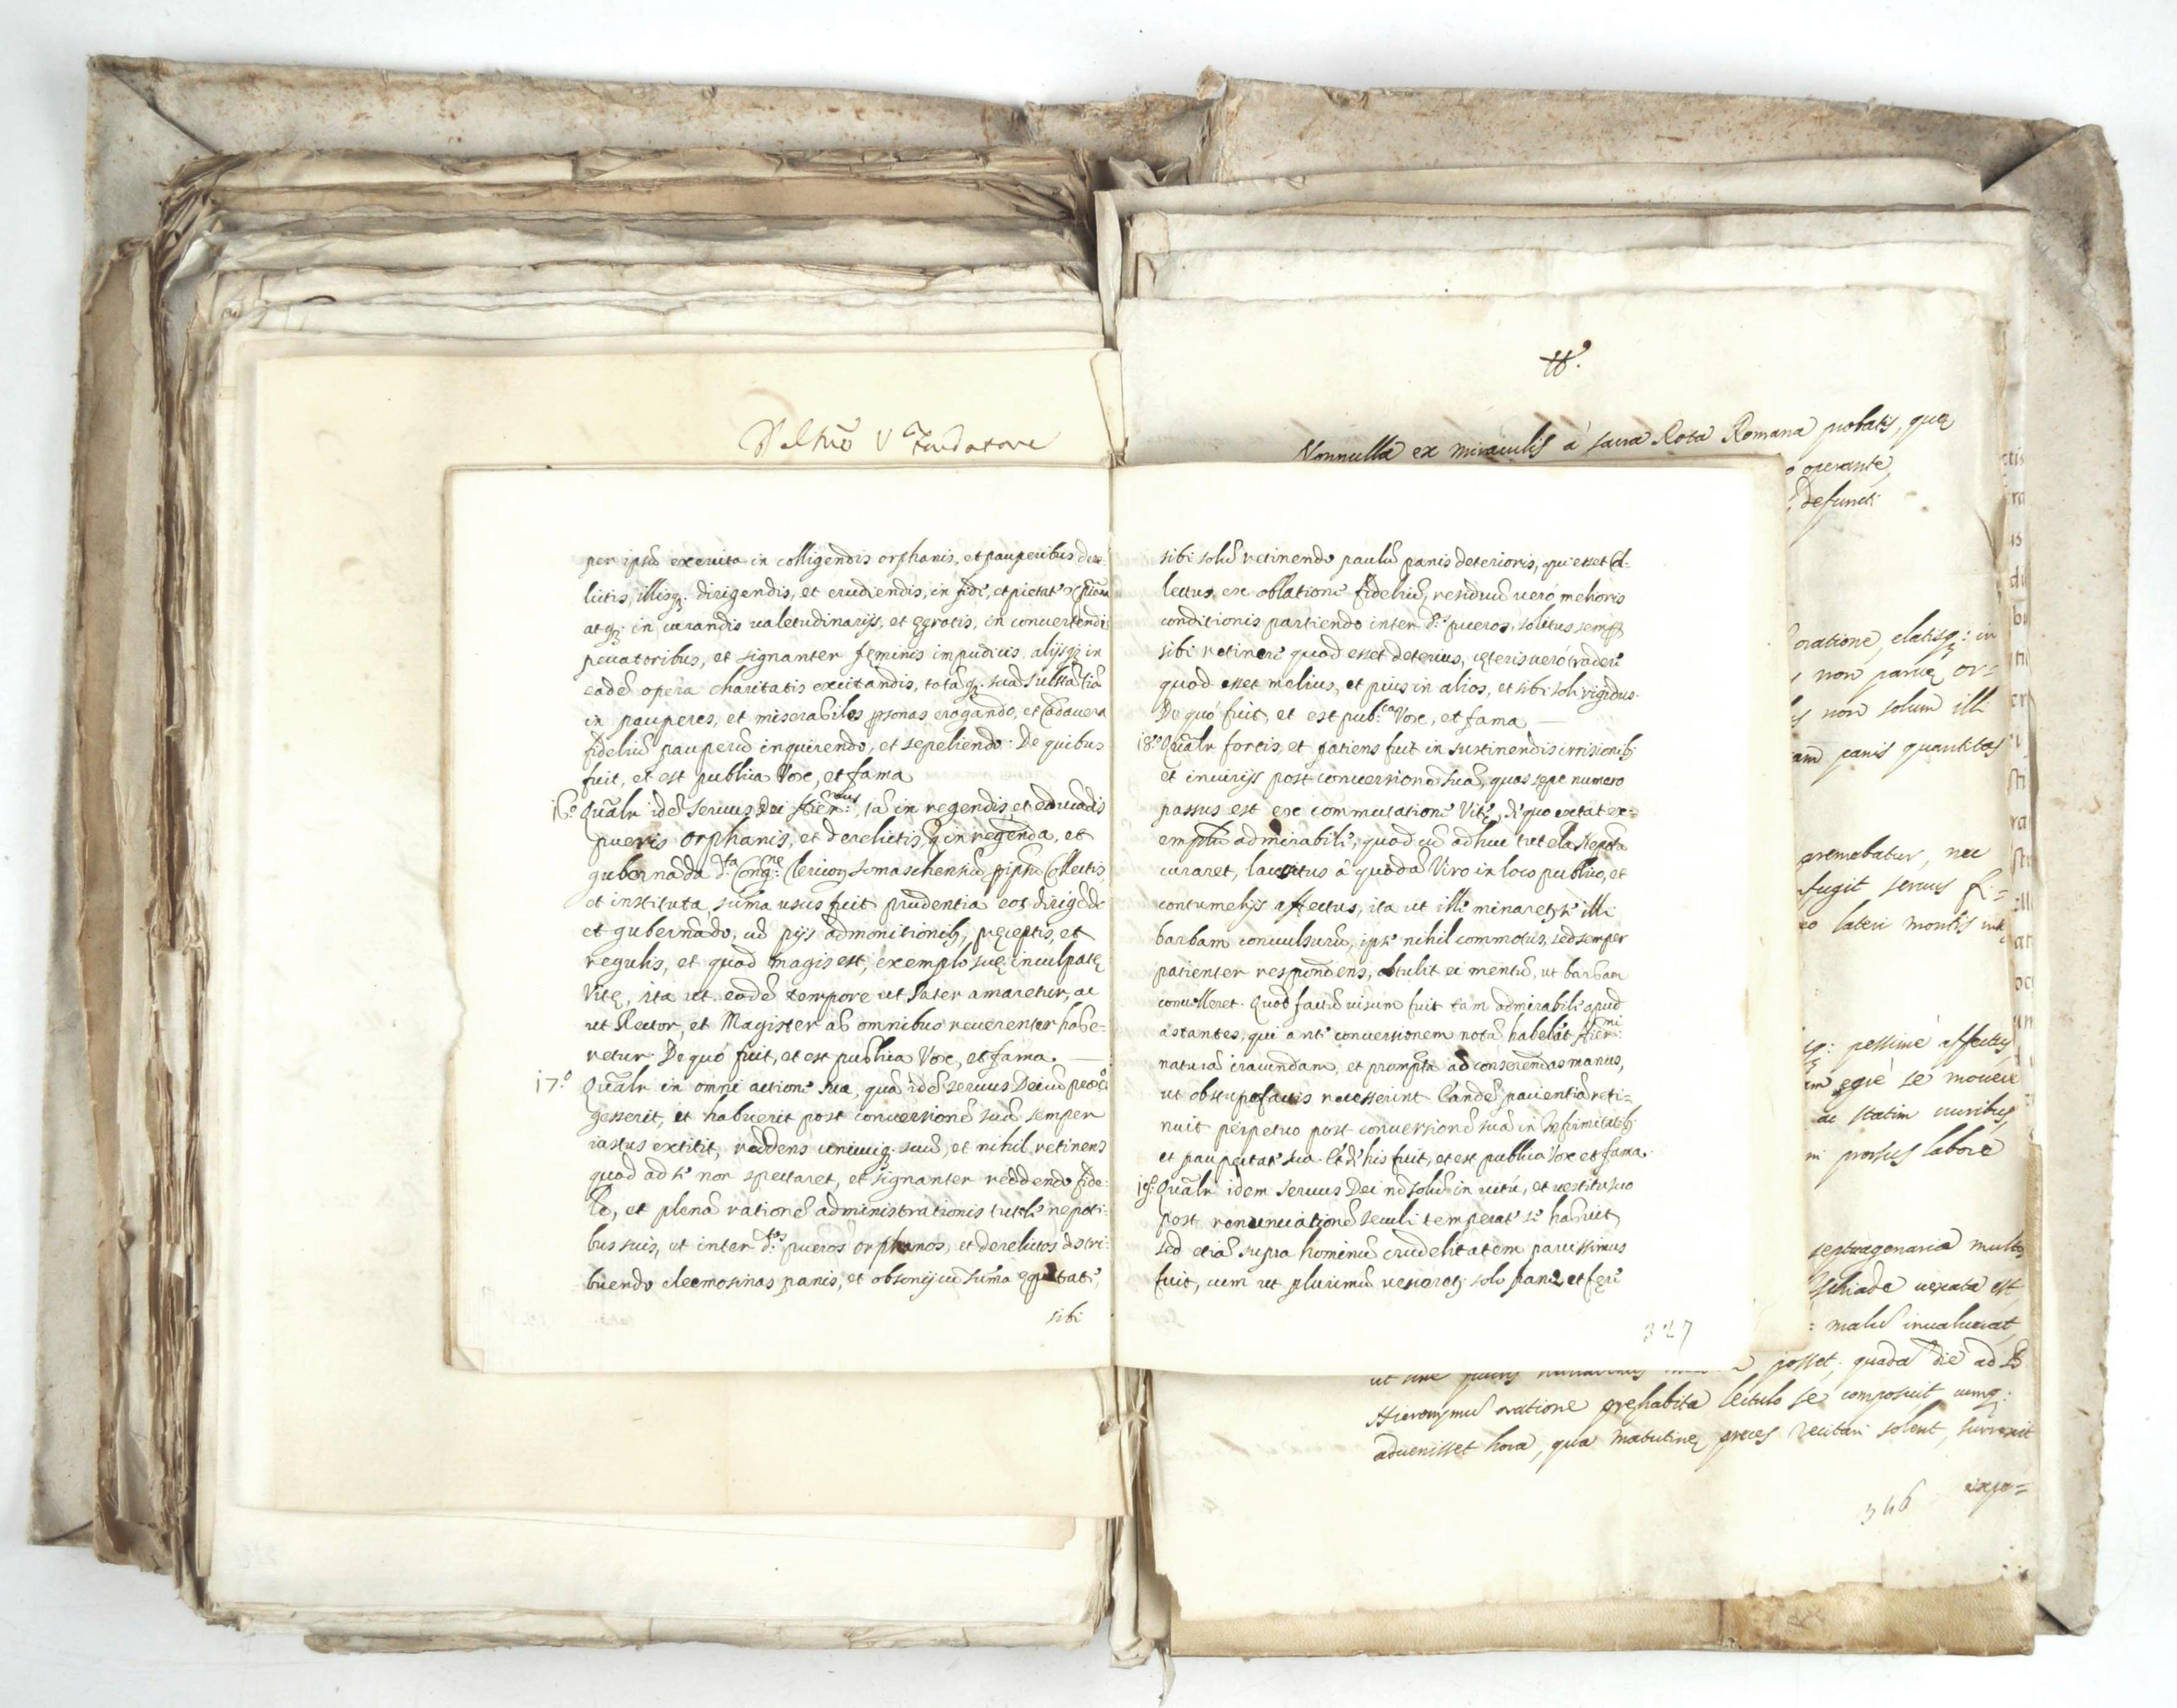 Del Nro V. Fundatore
per ipsū exercita in colligendis orphanis, et pauperibus dere-
lictis, illisq; dirigendis, et erudiendis, in fide, et pietate Xpiana
atq; in curandis valetudinarijs, et ęgrotis, in convertendis
peccatoribus, et signanter fęminis impudicis, alijsq; in
eadē opera charitatis excitandis, totāq; suā substātiā
in pauperes, et miserabiles psonas erogando, et Cadavera
fideliū pauperū inquirendo, et sepeliendo. De quibus
fuit, et est publica Vox, et fama
16.º Qualr idē servus Dei Hier.mus tā in regendis et educādis
pueris orphanis, et derelictis, q in regenda, et
gubernāda d.ta Cong.ne Clericoꝝ Somaschensiū p ipsū Collectis,
et instituta, summa usus fuit prudentia eos dirigēdo
et gubernādo, cū pijs admonitionibꝫ, pręceptis, et
regulis, et quod magis est, exemplo suę inculpatę
Vitę, ita ut eodē tempore ut Pater amaretur, ac
ut Rector, et Magister ab omnibus reverenter habe=
retur. De quo fuit, et est publica Vox, et fama. —
17.º Qualr in omni actione sua, quā idē servus Dei cū proxo
gesserit, et habuerit post conversionē suā semper
iustus extitit, reddens unicuiq; suū, et nihil retinens
quod ad se non spectaret, et signanter reddendo fide-
lē, et plenā rationē administrationis tutelę nepoti-
bus suis, et inter d.tos pueros orphanos, et derelictos distri-
buendo eleemosinas panis, et obsonij cū sūma ęquitate,
sibi
sibi solū retinendo paulū panis deterioris, qui esset Col-
lectus ex oblatione fideliū, residuū verò melioris
conditionis partiendo inter d.s pueros, solitus semp
sibi retinere quod esset deterius, cęteris verò tradere
quod esset melius, et pius in alios, et sibi soli rigidus.
De quo fuit, et est pub.ca Vox, et fama —
18.º Qualr fortis, et patiens fuit in sustinendis irrisionibꝫ
et iniurijs post conversionē suā, quas sępe numero
passus est ex commutatione Vitę, de quo extat ex-
emplū admirabile, quod cū adhuc tutela Nepotū
curaret, lacessitus à quodā Viro in loco publico, et
contumelijs affectus, ita ut ille minaretꝫ se illi
barbam convulsurū, ipse nihil commotus, sed semper
patienter respondens, obtulit ei mentū, ut barbam
convelleret. Quod factū visum fuit tam admirabile apud
astantes, qui ante conversionem notā habebāt Hier.mi
naturā iracundam, et promptā ad conserendas manus,
ut obstupefactis recesserint. Eandē patientiā reti-
nuit perpetuo post conversionē suā in Infirmitatibꝫ
et paupertate sua. Et de his fuit, et est publica Vox et fama.
19.º Qualr idem servus Dei nō solū in victu, et vestitu suo
post renunciationē seculi temperatē se habuit,
sed etiā supra hominū crudelitatem parcissimus
fuit, cum ut plurimū vesceretꝫ solo pane, et ferè
327
Nonnulla ex miraculis à sacra Rota Romana probatis, quę
operante,
defuncti
oratione, elatisq; in
non parvę or=
non solum illi
am panis quantitas
premebatur, nec
fugit servus f=
eo lateri montis
pessimè affectus
ęgrè se movere
ac statim viribus
prorsus labore
septuagenaria
Schiade vexata est
malū invaluerat
posset, quadā die ad B
Hieronymū oratione pręhabita lectulo se composuit, cumq;
advenisset hora, qua matutinę preces recitari solent, surrexit
expe=
346